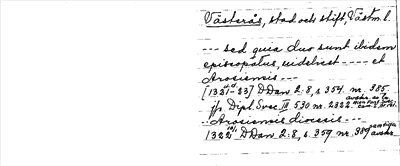 Västerås, stad och stift, Västm. l.
--- sed quia duo sunt ibidem
episcopatus, videlicet ---- et
Arosiensis ---
[1321-23] DDan 2:8, s 354 nr. 385
jfr Dipl. Svec III 530 nr. 2322
.. Arosiensis diocesis ---
1322 DDan 2:8, s. 359 nr. 389 avskr.